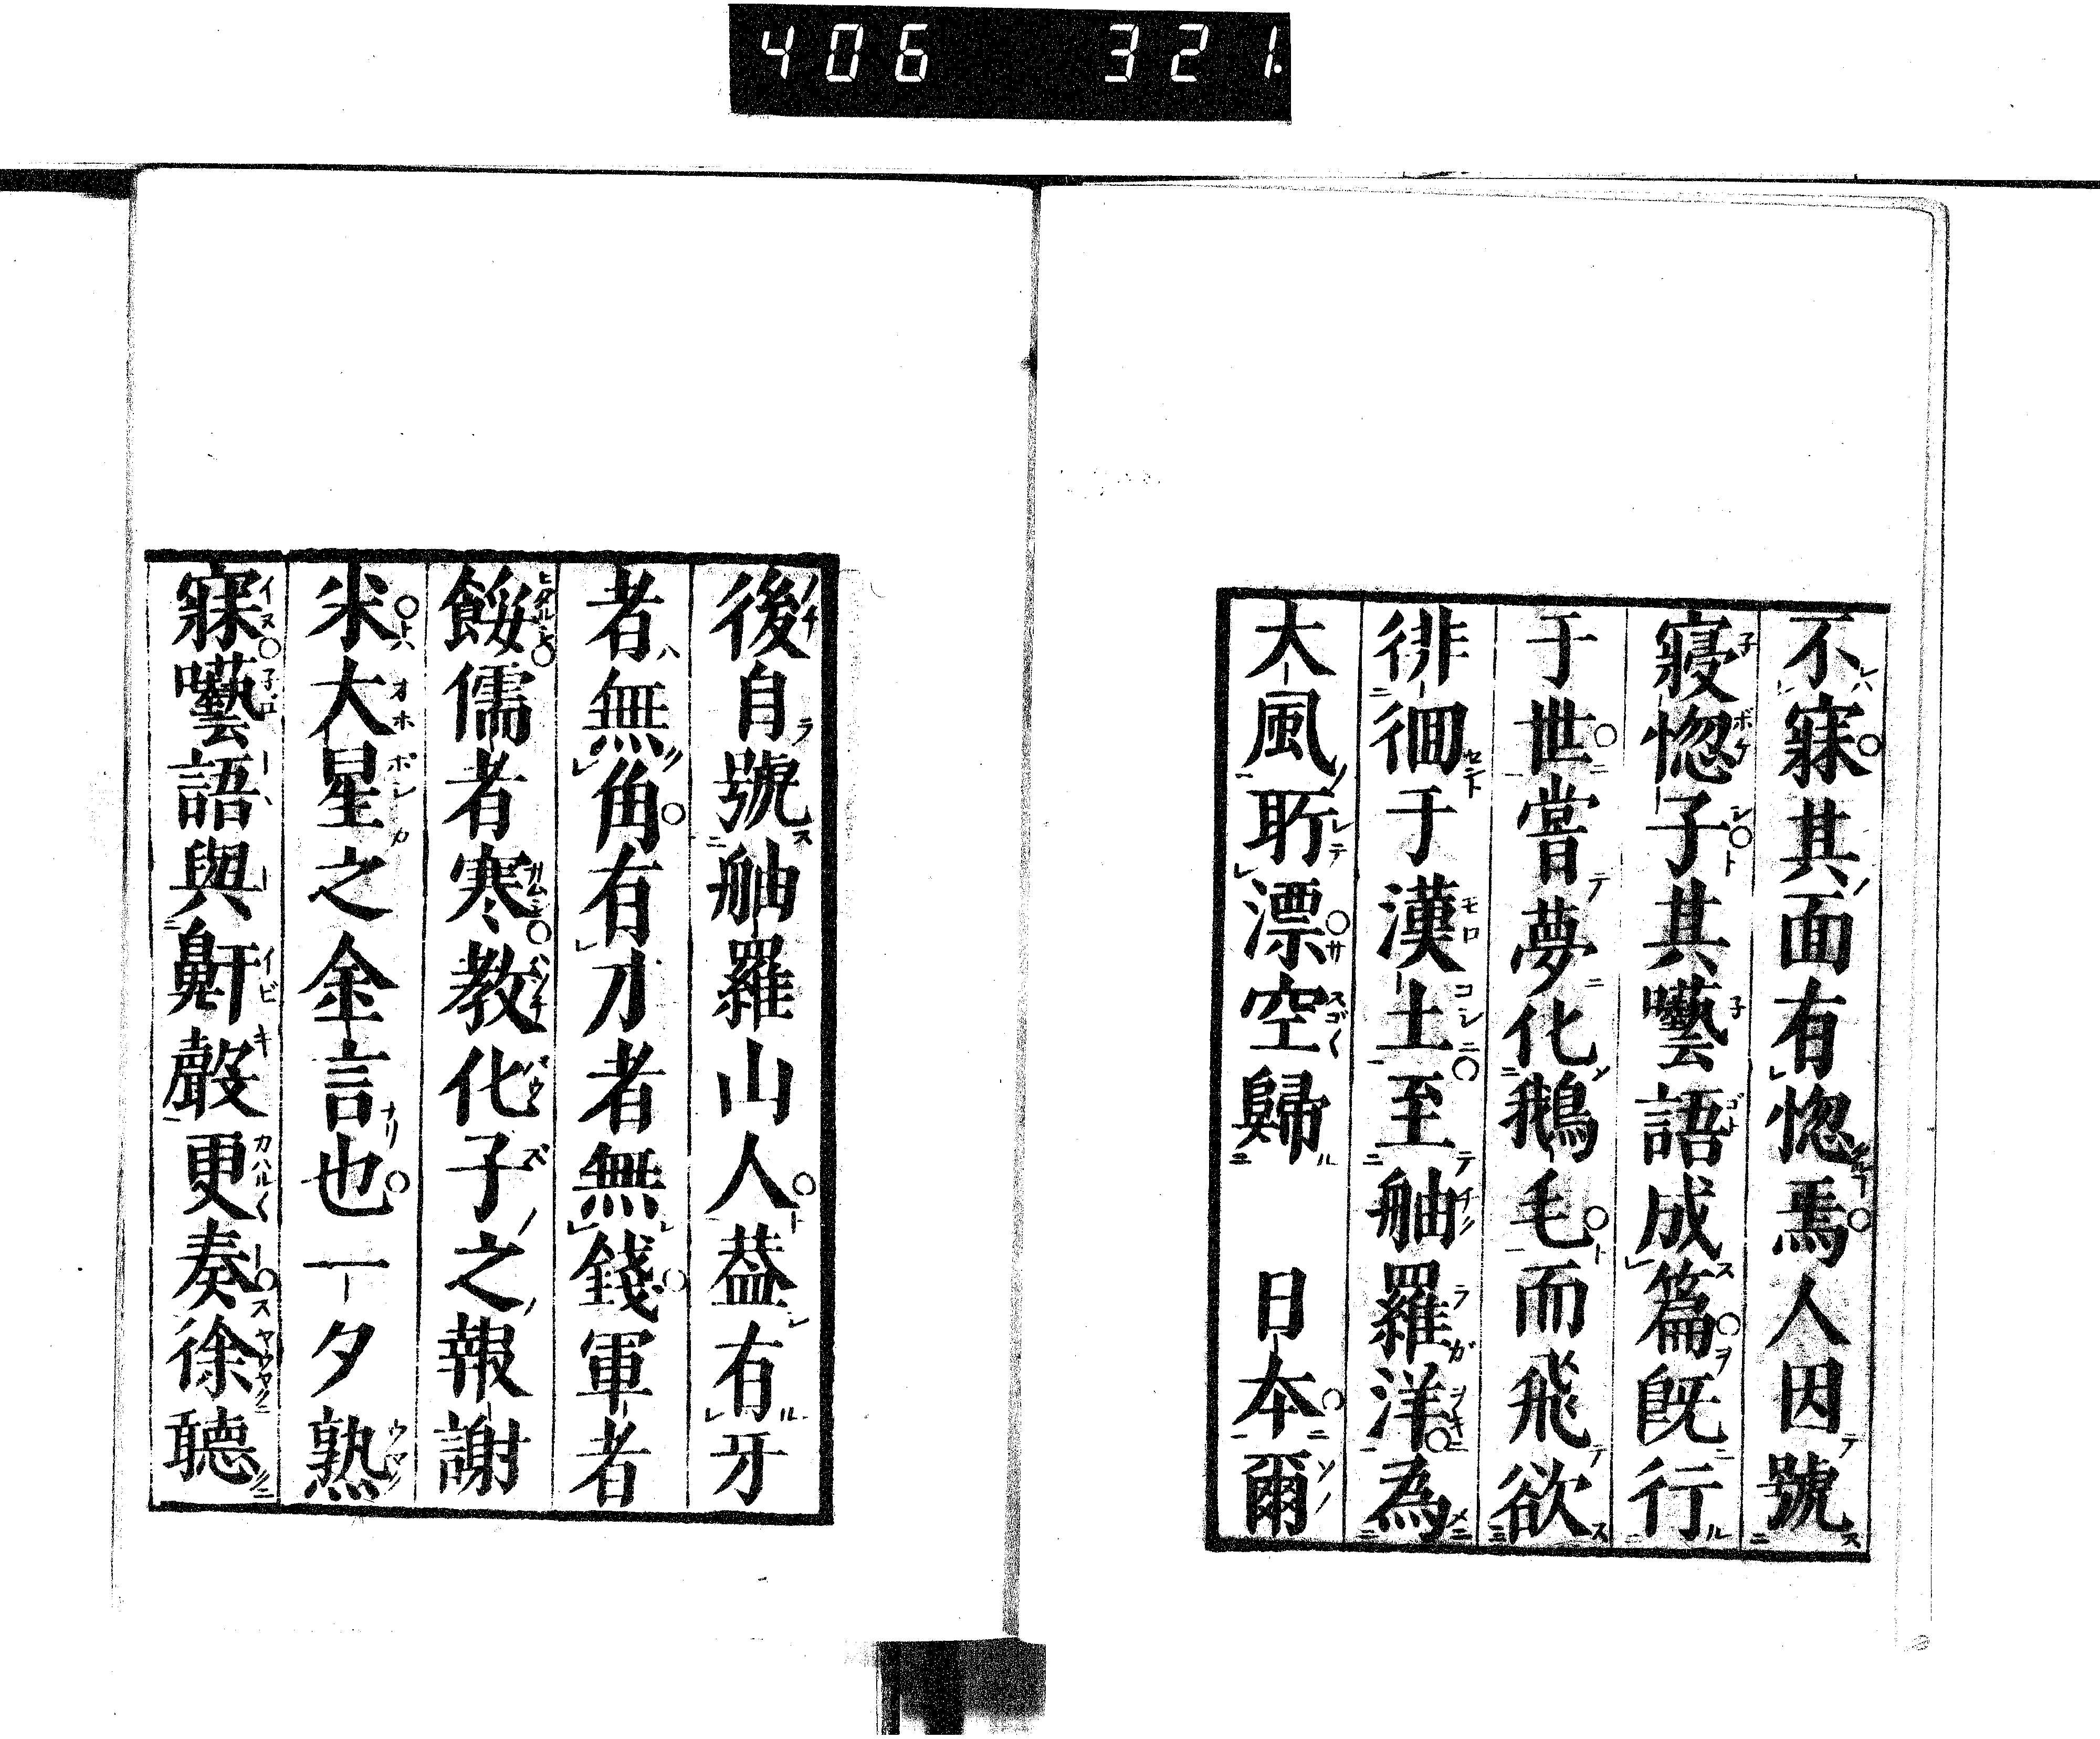 406 321.
不寐其面有惚焉人因號
寢惚子其囈語成篇既行
于世嘗夢化鵝毛而飛欲
徘徊于漢土至舳羅洋為
大風所漂空歸 日本爾
後自號舳羅山人葢有牙
者無角有才者無錢軍者
餒儒者寒教化子之報謝
米大星之金言也一夕熟
寐囈語與鼾聲更奏徐聽